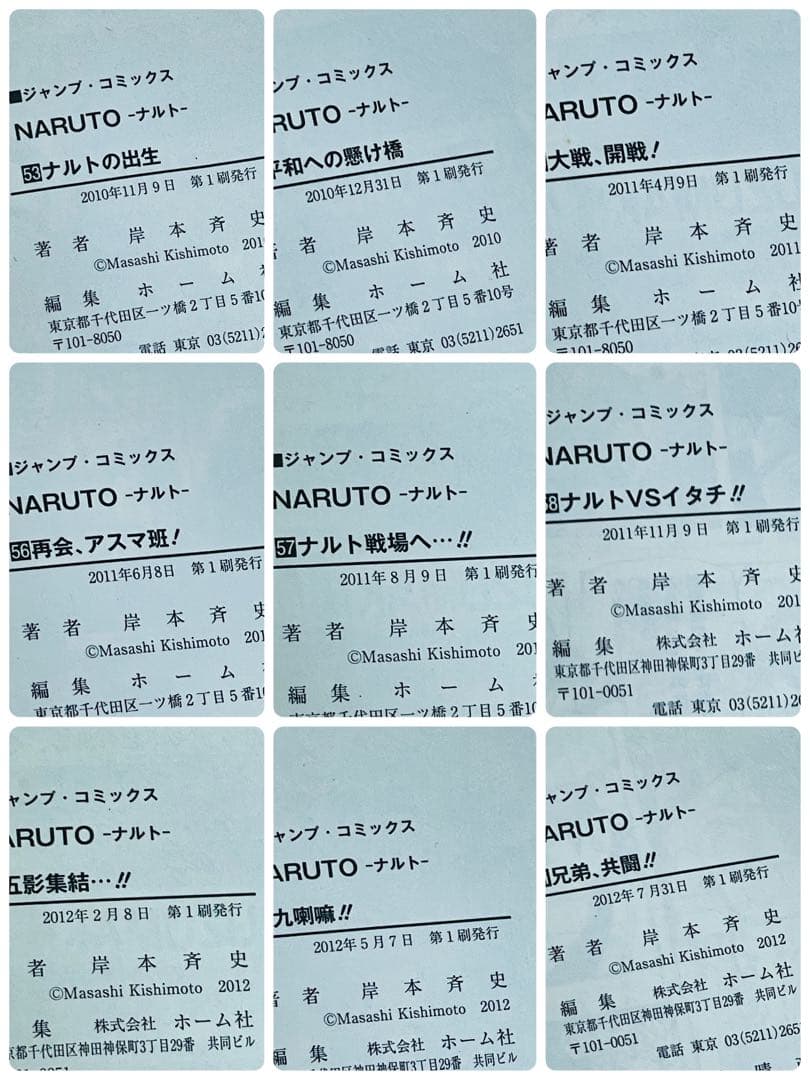 ■ジャンプ・コミックス
NARUTO -ナルト-
53 ナルトの出生
2010年11月9日 第1刷発行
著者 岸本斉史
©Masashi Kishimoto 201
編集 ホーム社
東京都千代田区一ツ橋2丁目5番10
〒101-8050
電話 東京 03(5211)2
ンプ・コミックス
RUTO -ナルト-
平和への懸け橋
2010年12月31日 第1刷発行
著者 岸本斉史
©Masashi Kishimoto 2010
編集 ホーム社
東京都千代田区一ツ橋2丁目5番10号
〒101-8050
電話 東京 03(5211)2651
ャンプ・コミックス
ARUTO -ナルト-
大戦、開戦!
2011年4月9日 第1刷発行
著者 岸本斉史
©Masashi Kishimoto 2011
編集 ホーム社
東京都千代田区一ツ橋2丁目5番10号
〒101-8050
東京 03(5211)265
ジャンプ・コミックス
NARUTO -ナルト-
56 再会、アスマ班!
2011年6月8日 第1刷発行
著者 岸本斉史
©Masashi Kishimoto 201
編集 ホーム社
東京都千代田区一ツ橋2丁目5番10
■ジャンプ・コミックス
NARUTO -ナルト-
57 ナルト戦場へ…!!
2011年8月9日 第1刷発行
著者 岸本斉史
©Masashi Kishimoto 201
編集 ホーム社
東京都千代田区一ツ橋2丁目5番10
ジャンプ・コミックス
NARUTO -ナルト-
8 ナルトVSイタチ!!
2011年11月9日 第1刷発行
著者 岸本斉史
©Masashi Kishimoto 201
編集 株式会社 ホーム社
東京都千代田区神田神保町3丁目29番 共同ビ
〒101-0051
電話 東京 03(5211)26
ャンプ・コミックス
ARUTO -ナルト-
五影集結…!!
2012年2月8日 第1刷発行
者 岸本斉史
©Masashi Kishimoto 2012
集 株式会社 ホーム社
京都千代田区神田神保町3丁目29番 共同ビル
0051
ャンプ・コミックス
ARUTO -ナルト-
九喇嘛!!
2012年5月7日 第1刷発行
著者 岸本斉史
©Masashi Kishimoto 2012
編集 株式会社 ホーム社
東京都千代田区神田神保町3丁目29番 共同ビル
ャンプ・コミックス
ARUTO -ナルト-
兄弟、共闘!!
2012年7月31日 第1刷発行
著者 岸本斉史
©Masashi Kishimoto 2012
編集 株式会社 ホーム社
東京都千代田区神田神保町3丁目29番 共同ビル
〒101-0051
電話 東京 03(5211)265